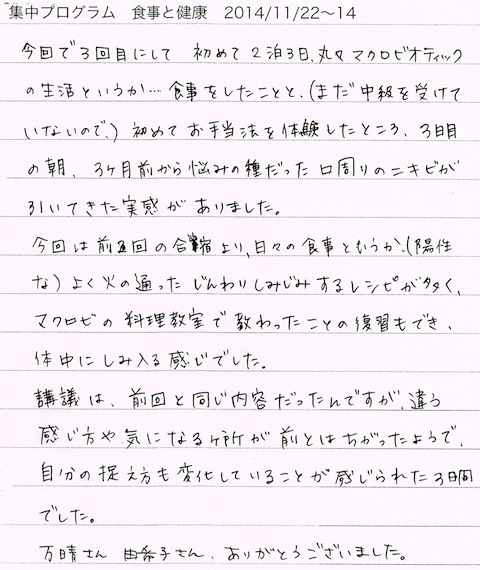 集中プログラム　食事と健康　2014/11/22〜14
今回で3回目にして　初めて2泊3日、丸々マクロビオティック
の生活というか…食事をしたことと、(まだ中級を受けて
いないので、)初めてお手当法を体験したところ、3日目
の朝、3ヶ月前から悩みの種だった口周りのニキビが
引いてきた実感がありました。
今回は前回の合宿より、日々の食事というか、(陽性
な)よく火の通ったじんわりしみじみするレシピが多く、
マクロビの料理教室で教わったことの復習もでき、
体中にしみ入る感じでした。
講義は、前回と同じ内容だったんですが、違う
感じ方や気になるヶ所が前とはちがったようで、
自分の捉え方も変化していることが感じられた3日間
でした。
万晴さん　由希子さん、ありがとうございました。